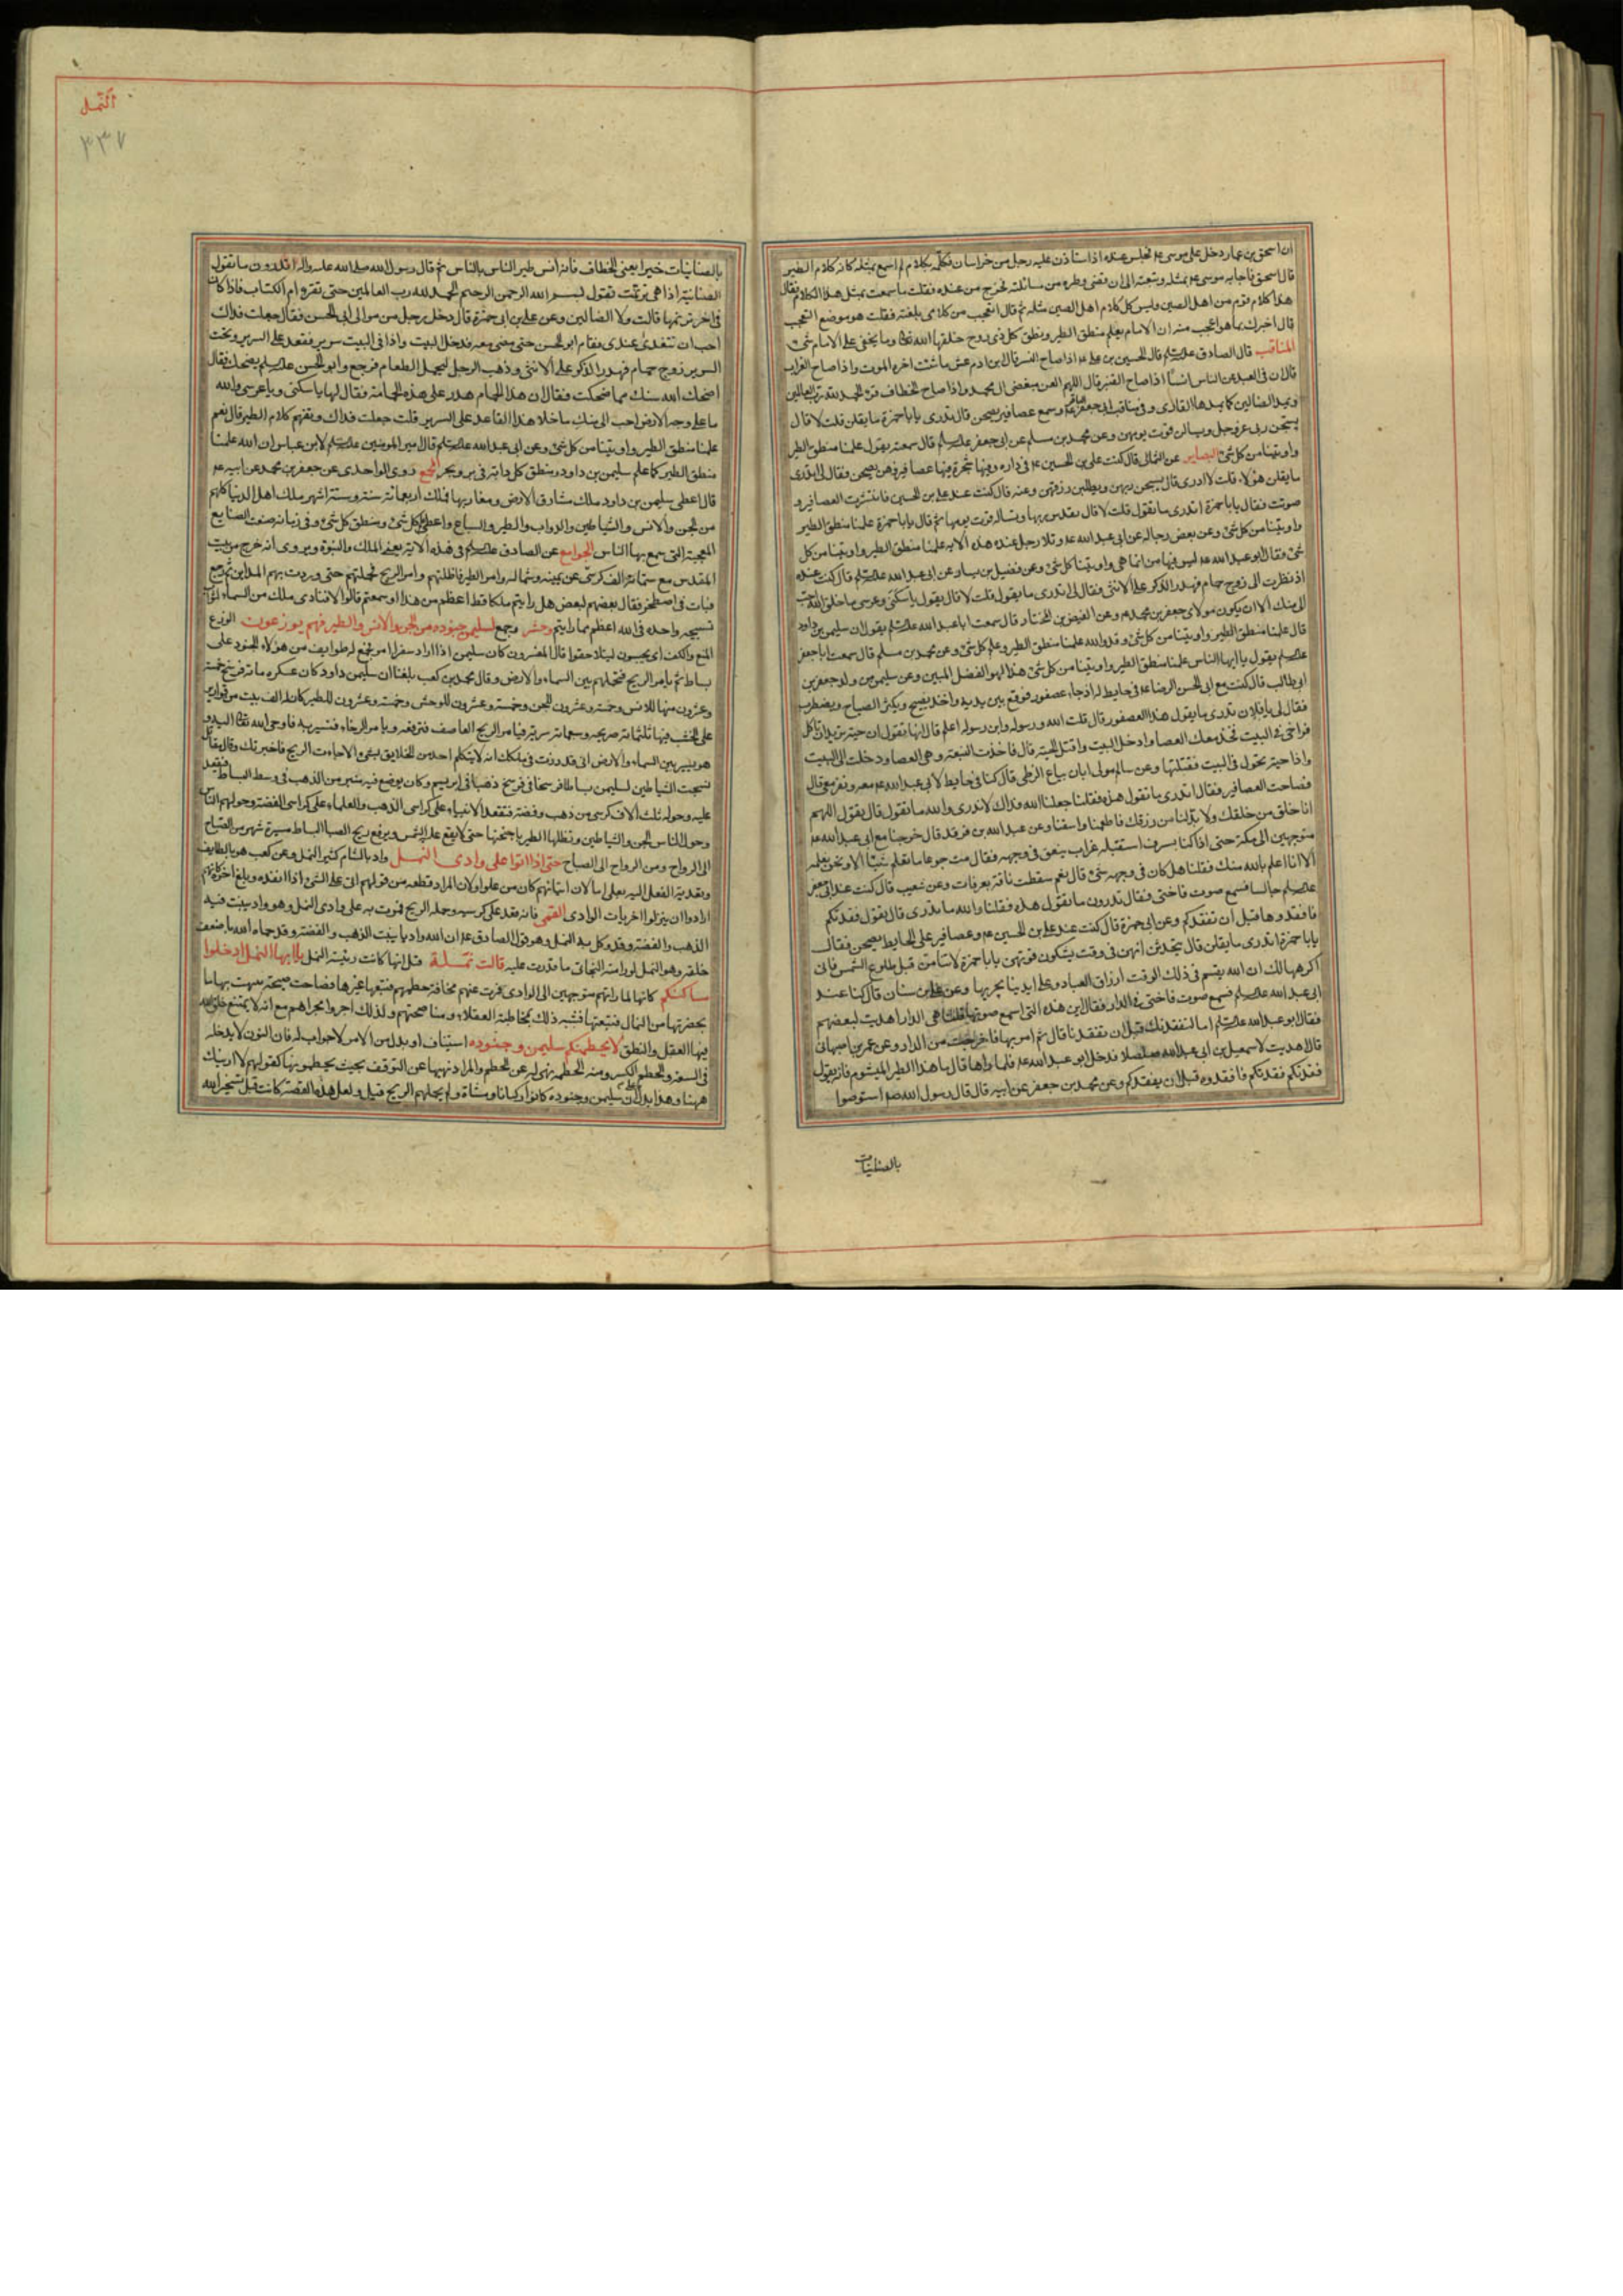 ان اسحق بن عمار دخل على موسى عم فجلس عنده اذا استاذن عليه رجل من خراسان فكلمه بكلام لم اسمع بمثله كانه كلام الطير
قال اسحق فاجابه موسى عم بمثله وبلغته الى ان قضى وطره من مسائلته فخرج من عنده فقلت ما سمعت بمثل هذا الكلام فقال
هذا كلام قوم من اهل الصين وليس كل كلام اهل الصين مثله ثم قال اتعجب من كلامى بلغته فقلت هو موضع التعجب
قال اخبرك بما هو اعجب منه ان الامام يعلم منطق الطير ونطق كل ذى روح خلقها الله تعا وما يخفى على الامام شئ
المناقب قال الصادق قال الحسين بن على عم اذا صاح النسر قال ابن ادم عش ما شئت اخره الموت واذا صاح الغراب
قال ان فى العبد عن الناس انسا اذا صاح القنبر قال اللهم العن مبغضى ال محمد واذا صاح الخطاف قرء الحمد لله رب العالمين
ويمد الضالين كما يمدها القارى وفى مناقب ابى جعفر عم وسمع عصافير يصحن قال تدرى يا با حمزة ما يقلن قلت لا قال
يسبحن ربى عز وجل ويسالن قوت يومهن وعن محمد بن مسلم عن ابى جعفر قال سمعته يقول علمنا منطق الطير
واوتينا من كل شئ البصاير عن الثمالى قال كنت مع على بن الحسين عم فى داره وفيها شجرة فيها عصافير فهن يصحن فقال لى اتدرى
ما يقلن هؤلاء قلت لا ادرى قال يسبحن ربهن ويطلبن رزقهن وعنه قال كنت عند على بن الحسين فانتشرت العصافير و
صوتت فقال يا با حمزة اتدرى ما تقول قلت لا قال تقدس ربها وتساله قوت يومها ثم قال يا با حمزة علمنا منطق الطير
واوتينا من كل شئ وعن بعض رجاله عن ابى عبد الله عم وتلا رجل عنده هذه الايه علمنا منطق الطير واوتينا من كل
شئ فقال ابو عبد الله عم ليس فيها من انما هى واوتينا كل شئ وعن فضيل بن يسار عن ابى عبد الله قال كنت عنده
اذ نظرت الى زوج حمام فهدر الذكر على الانثى فقال لى اتدرى ما يقول قلت لا قال يقول يا سكنى وعرسى ما خلق الله احب
الى منك الا ان يكون مولاى جعفر بن محمد عم وعن الفيض بن المختار قال سمعت ابا عبد الله يقول ان سليمن بن داود
قال علمنا منطق الطير واوتينا من كل شئ وقد والله علمنا منطق الطير وعلم كل شئ وعن محمد بن مسلم قال سمعت ابا جعفر
يقول يا ايها الناس علمنا منطق الطير واوتينا من كل شئ هذا لهو الفضل المبين وعن سليمن من ولد جعفر بن
ابى طالب قال كنت مع ابى الحسن الرضا عم فى حايط له اذ جاء عصفور فوقع بين يديه واخذ يصيح ويكثر الصياح ويضطرب
فقال لى يا فلان تدرى ما يقول هذا العصفور قال قلت الله ورسوله وابن رسوله اعلم قال انها تقول ان حية تريد ان تاكل
فراخى فى البيت فخذ معك العصا وادخل البيت واقتل الحية قال فاخذت النبعة وهى العصا ودخلت الى البيت
واذا حية تحول فى البيت فقتلتها وعن سالم مولى ابان بياع الزطى قال كنا فى حايط لابى عبد الله عم معه ونفر معى قال
فصاحت العصافير فقال اتدرى ما تقول هذه فقلنا جعلنا الله فداك لا ندرى والله ما تقول قال يقول اللهم
انا خلق من خلقك ولا بد لنا من رزقك فاطعمنا واسقنا وعن عبد الله بن فرقد قال خرجنا مع ابى عبد الله عم
متوجهين الى مكة حتى اذا كنا بسرف استقبله غراب ينعق فى وجهه فقال مت جوعا ما تعلم شيئا الا ونحن نعلمه
الا انا اعلم بالله منك فقلنا هل كان فى وجهه شئ قال نعم سقطت ناقة بعرفات وعن شعيب قال كنت عند ابى جعفر
جالسا فسمع صوت فاختى فقال تدرون ما تقول هذه فقلنا والله ما ندرى قال يقول فقدتكم
فافقدوها قبل ان تفقدكم وعن ابى حمزة قال كنت عند على بن الحسين عم وعصافير على الحايط يصحن فقال
يا با حمزة اتدرى ما يقلن قال يتحدثن انهن فى وقت يشكون قوتهن يا با حمزة لا تنامن قبل طلوع الشمس فانى
اكرهها لك ان الله يقسم فى ذلك الوقت ارزاق العباد وعلى ايدينا يجريها وعن بن سنان قال كنا عند
ابى عبد الله فسمع صوت فاختى فى الدار فقال اين هذه التى اسمع صوتها قلنا هى فى الدار اهديت لبعضهم
فقال ابو عبد الله اما لنفقدنك قبل ان تفقدنا قال ثم امر بها فاخرجت من الدار وعن عمر بن اصبهانى
قال اهديت لاسمعيل بن ابى عبد الله صلصلا فدخل ابو عبد الله عم فلما راها قال ما هذا الطير الميشوم فانه يقول
فقدتكم فقدتكم فافقدوه قبل ان يفقدكم وعن محمد بن جعفر عن ابيه قال قال رسول الله ص استوصوا
بالصنانيات
النمل
٣٣٧
بالصنانيات خيرا يعنى الخطاف فانه انس طير الناس بالناس ثم قال رسول الله صلى الله عليه واله اتدرون ما تقول
الصنانية اذا هى ترنمت تقول بسم الله الرحمن الرحيم الحمد لله رب العالمين حتى تقره ام الكتاب فاذا كان
فى اخر ترنمها قالت ولا الضالين وعن على بن ابى حمزة قال دخل رجل من موالى ابى الحسن فقال جعلت فداك
احب ان تتغدى عندى فقام ابو الحسن حتى مضى معه فدخل البيت واذا فى البيت سرير فقعد على السرير وتحت
السرير زوج حمام فهدر الذكر على الانثى وذهب الرجل ليحمل الطعام فرجع وابو الحسن يضحك فقال
اضحك الله سنك مما ضحكت فقال ان هذا الحمام هدر على هذه الحمامة فقال لها يا سكنى ويا عرسى والله
ما على وجه الارض احب الى منك ما خلا هذا القاعد على السرير قلت جعلت فداك وتفهم كلام الطير قال نعم
علمنا منطق الطير واوتينا من كل شئ وعن ابى عبد الله قال قال امير المومنين لابن عباس ان الله علمنا
منطق الطير كما علم سليمن بن داود ومنطق كل دابة فى بر وبحر المجمع روى الواحدى عن جعفر بن محمد عن ابيه عم
قال اعطى سليمن بن داود ملك مشارق الارض ومغاربها فملك اربعمائة سنة وستة اشهر ملك اهل الدنيا كلهم
من الجن والانس والشياطين والدواب والطير والسباع واعطى كل شئ ومنطق كل شئ وفى زمانه صنعت الصنايع
المعجبة التى سمع بها الناس الجوامع عن الصادق فى هذه الاية يعنى الملك والنبوة ويروى انه خرج من بيت
المقدس مع ستمائة الف كرسى عن يمينه وشماله وامر الطير فاظلتهم وامر الريح فحملتهم حتى وردت بهم المداين ثم رجع
فبات فى اصطخر فقال بعضهم لبعض هل رايتم ملكا قط اعظم من هذا او سمعتم قالوا لا فنادى ملك من السماء
تسبيحة واحدة فى الله اعظم مما رايتم وحشر وجمع لسليمن جنوده من الجن والانس والطير فهم يوزعون الوزع
المنع والكف اى يحبسون ليتلاحقوا قال المفسرون كان سليمن اذا اراد سفرا امر فجمع له طوايف من هؤلاء الجنود على
بساط ثم يامر الريح فتحملهم بين السماء والارض وقال محمد بن كعب بلغنا ان سليمن بن داود كان عسكره مائة فرسخ خمسة
وعشرون منها للانس وخمسة وعشرون للجن وخمسة وعشرون للوحش وخمسة وعشرون للطير وكان له الف بيت من قوارير
على الخشب فيها ثلثمائة صريحه وسبعمائة سرية فيامر الريح العاصف فترفعه ويامر الرخاء فتسير به فاوحى الله تعا اليه و
هو يسير بين السماء والارض انى قد زدت فى ملكك انه لا يتكلم احد من الخلايق بشئ الا جاءت الريح فاخبرتك وقال مقاتل
نسجت الشياطين لسليمن بساطا فرسخا فى فرسخ ذهبا فى ابريسم وكان يوضع فيه منبر من الذهب فى وسط البساط فيقعد
عليه وحوله ثلث الاف كرسى من ذهب وفضة فتقعد الانبياء على كراسى الذهب والعلماء على كراسى الفضة وحولهم الناس
وحول الناس الجن والشياطين وتظلها الطير باجنحتها حتى لا يقع عليه الشمس ويرفع ريح الصبا البساط مسيرة شهر من الصباح
الى الرواح ومن الرواح الى الصباح حتى اذا اتوا على وادى النمل واد بالشام كثير النمل وعن كعب هو بالطايف
وتعدية الفعل اليه بعلى اما لان اتيانهم كان من علو او لان المراد قطعه من قولهم اتى على الشئ اذا انفده وبلغ اخره كانهم
ارادوا ان ينزلوا اخريات الوادى القمى فانه قعد على كرسيه وحمله الريح فمرت به على وادى النمل وهو واد ينبت فيه
الذهب والفضة وقد وكل به النمل وهو قول الصادق عم ان لله واديا ينبت الذهب والفضة وقد حماه الله باضعف
خلقه وهو النمل لو رامته البخاتى ما قدرت عليه قالت نملة قيل انها كانت رئيسة النمل يا ايها النمل ادخلوا
مساكنكم كانها لما راتهم متوجهين الى الوادى فرت عنهم مخافة حطمهم فتبعها غيرها فصاحت صيحة تنبهت بها ما
بحضرتها من النمال فتبعتها فشبه ذلك بمخاطبة العقلاء ومناصحتهم ولذلك اجروا مجراهم مع انه لا يمتنع خلق الله
فيها العقل والنطق لا يحطمنكم سليمن وجنوده استيناف او بدل من الامر لا جواب له فان النون لا يدخله
فى السعة والحطم الكسر ومنه الحطمة نهى لهم عن الحطم والمراد نهيها عن التوقف بحيث يحطمونها كقولهم لا ارينك
ههنا وهذا يدل على ان سليمن وجنوده كانوا ركبانا ومشاة ولم يحملهم الريح قيل ولعل هذه القصة كانت قبل تسخير الله